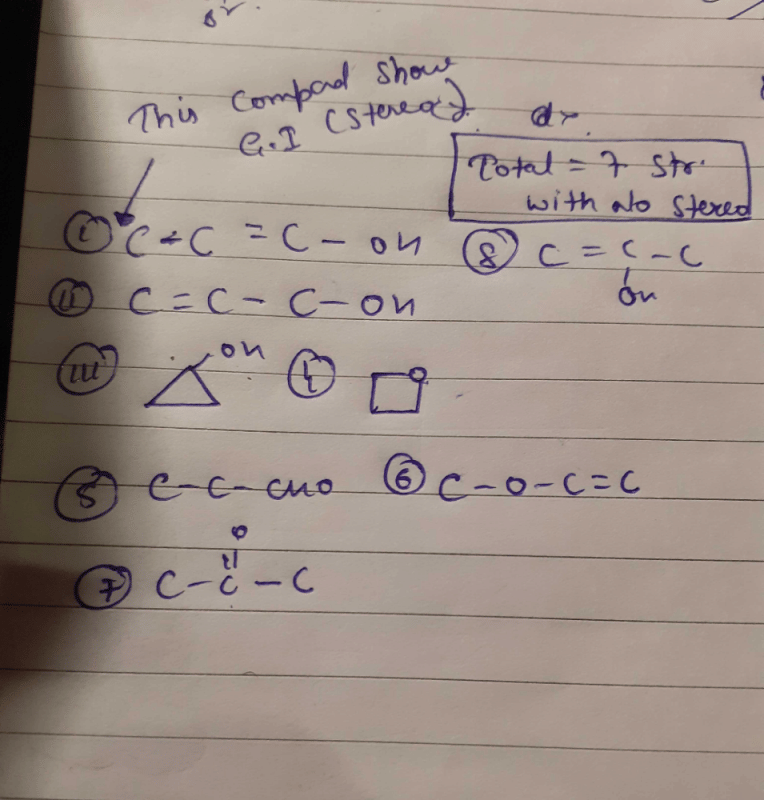 This compad show
G.I (stereo)
Total = 7 str.
with No stereo
① C - C = C - OH ⑧ C = C - C
OH
② C = C - C - OH
③ OH ④ O
⑤ C - C - CHO ⑥ C - O - C = C
O
⑦ C - C - C